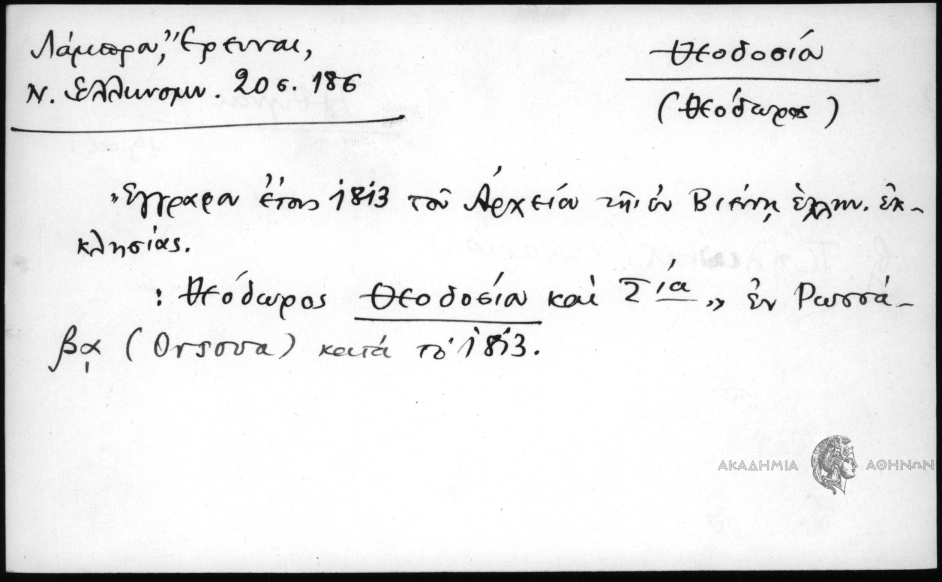 Λάμπρου, Ἔρευναι,
Ν. Ἑλληνομν. 20 σ. 186
Θεοδοσίου
(Θεόδωρος)
Ἔγγραφα ἔτους 1813 τοῦ Ἀρχείου τῆς ἐν Βιέννῃ ἑλλην. ἐκ-
κλησίας.
: Θεόδωρος Θεοδοσίου καὶ Σία „ ἐν Ρωσσά-
βᾳ (Ορσοva) κατὰ τὸ 1813.
ΑΚΑΔΗΜΙΑ ΑΘΗΝΩΝ